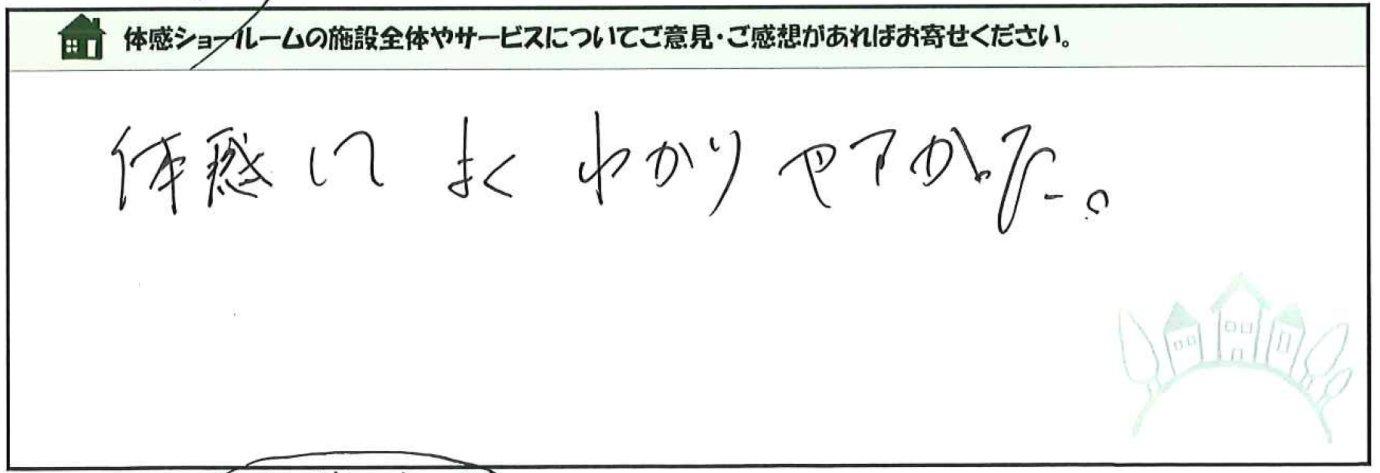 体感ショールームの施設全体やサービスについてご意見・ご感想があればお寄せください。
体感して よく わかり やすかった。